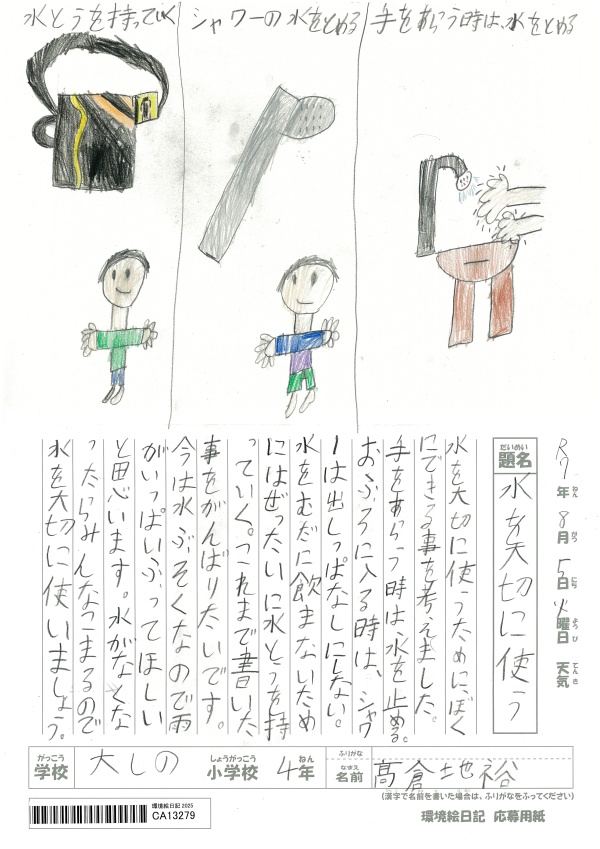 水とうを持っていく
シャワーの水をとめる
手をあらう時は、水をとめる
R7年8月5日火曜日 天気
ねん がつ にち ようび てんき
だいめい
題名
水を大切に使う
水を大切に使うために、ぼく
にできる事を考えました。
手をあらう時は、水を止める。
おふろに入る時は、シャワ
ーは出しっぱなしにしない。
水をむだに飲まないため
にはぜったいに水とうを持
っていく。これまで書いた
事をがんばりたいです。
今は水ぶそくなので雨
がいっぱいふってほしい
と思います。水がなくな
ったらみんなこまるので
水を大切に使いましょう。
がっこう しょうがっこう ねん ふりがな
学校 大しの 小学校 4年
なまえ
名前 髙倉地裕
(漢字で名前を書いた場合は、ふりがなをふってください)
環境絵日記 2025
CA13279
環境絵日記 応募用紙